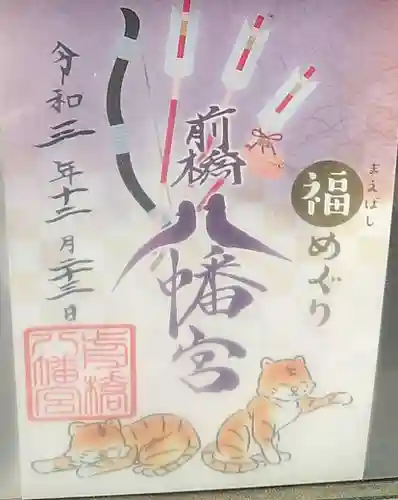 まえばし
福めぐり
前橋
八幡宮
令和三年十二月二十三日
前橋八幡宮